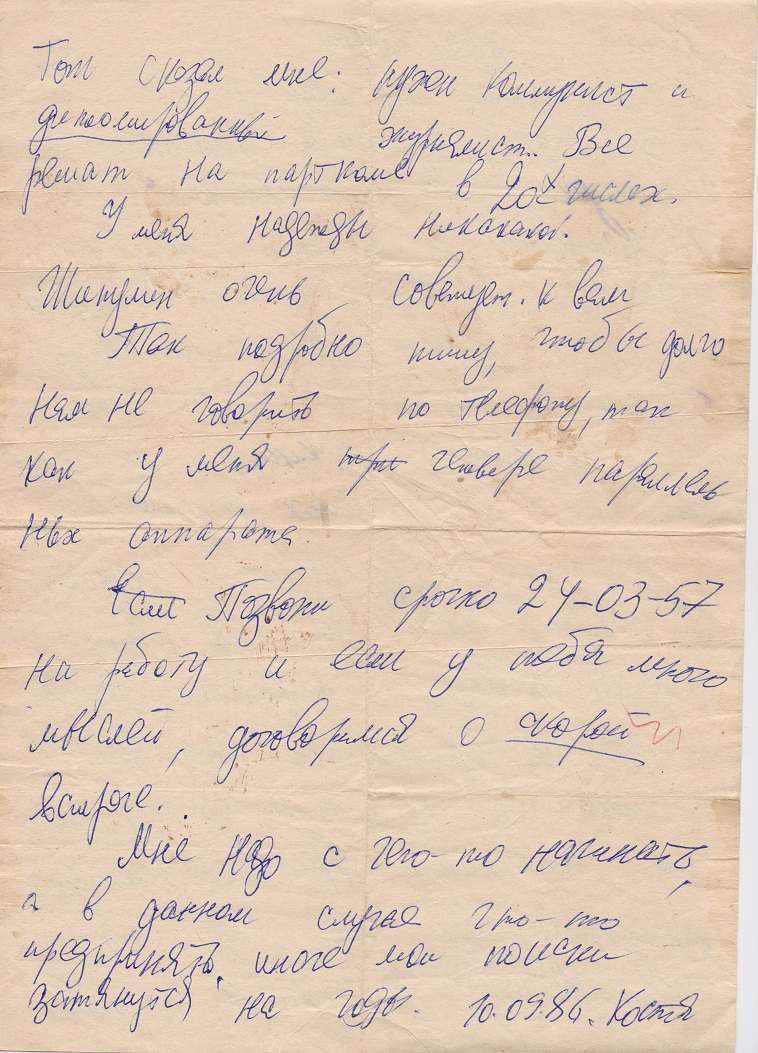 Тот сказал мне: нужен коммунист и
дипломированный журналист. Все
решат на парткоме в 20х числах.
У меня надежды никакой.
очень советует. к вам
Так подробно пишу, чтобы долго
нам не говорить по телефону, так
как у меня три четвере параллель
ных аппарата.
Если Позвони срочно 24-03-57
на работу и если у тебя много
мыслей, договоримся о скорой
встрече.
Мне надо с чего-то начинать,
а в данном случае что-то
предпринять, иначе мои поиски
затянутся на годы. 10.09.86. Костя